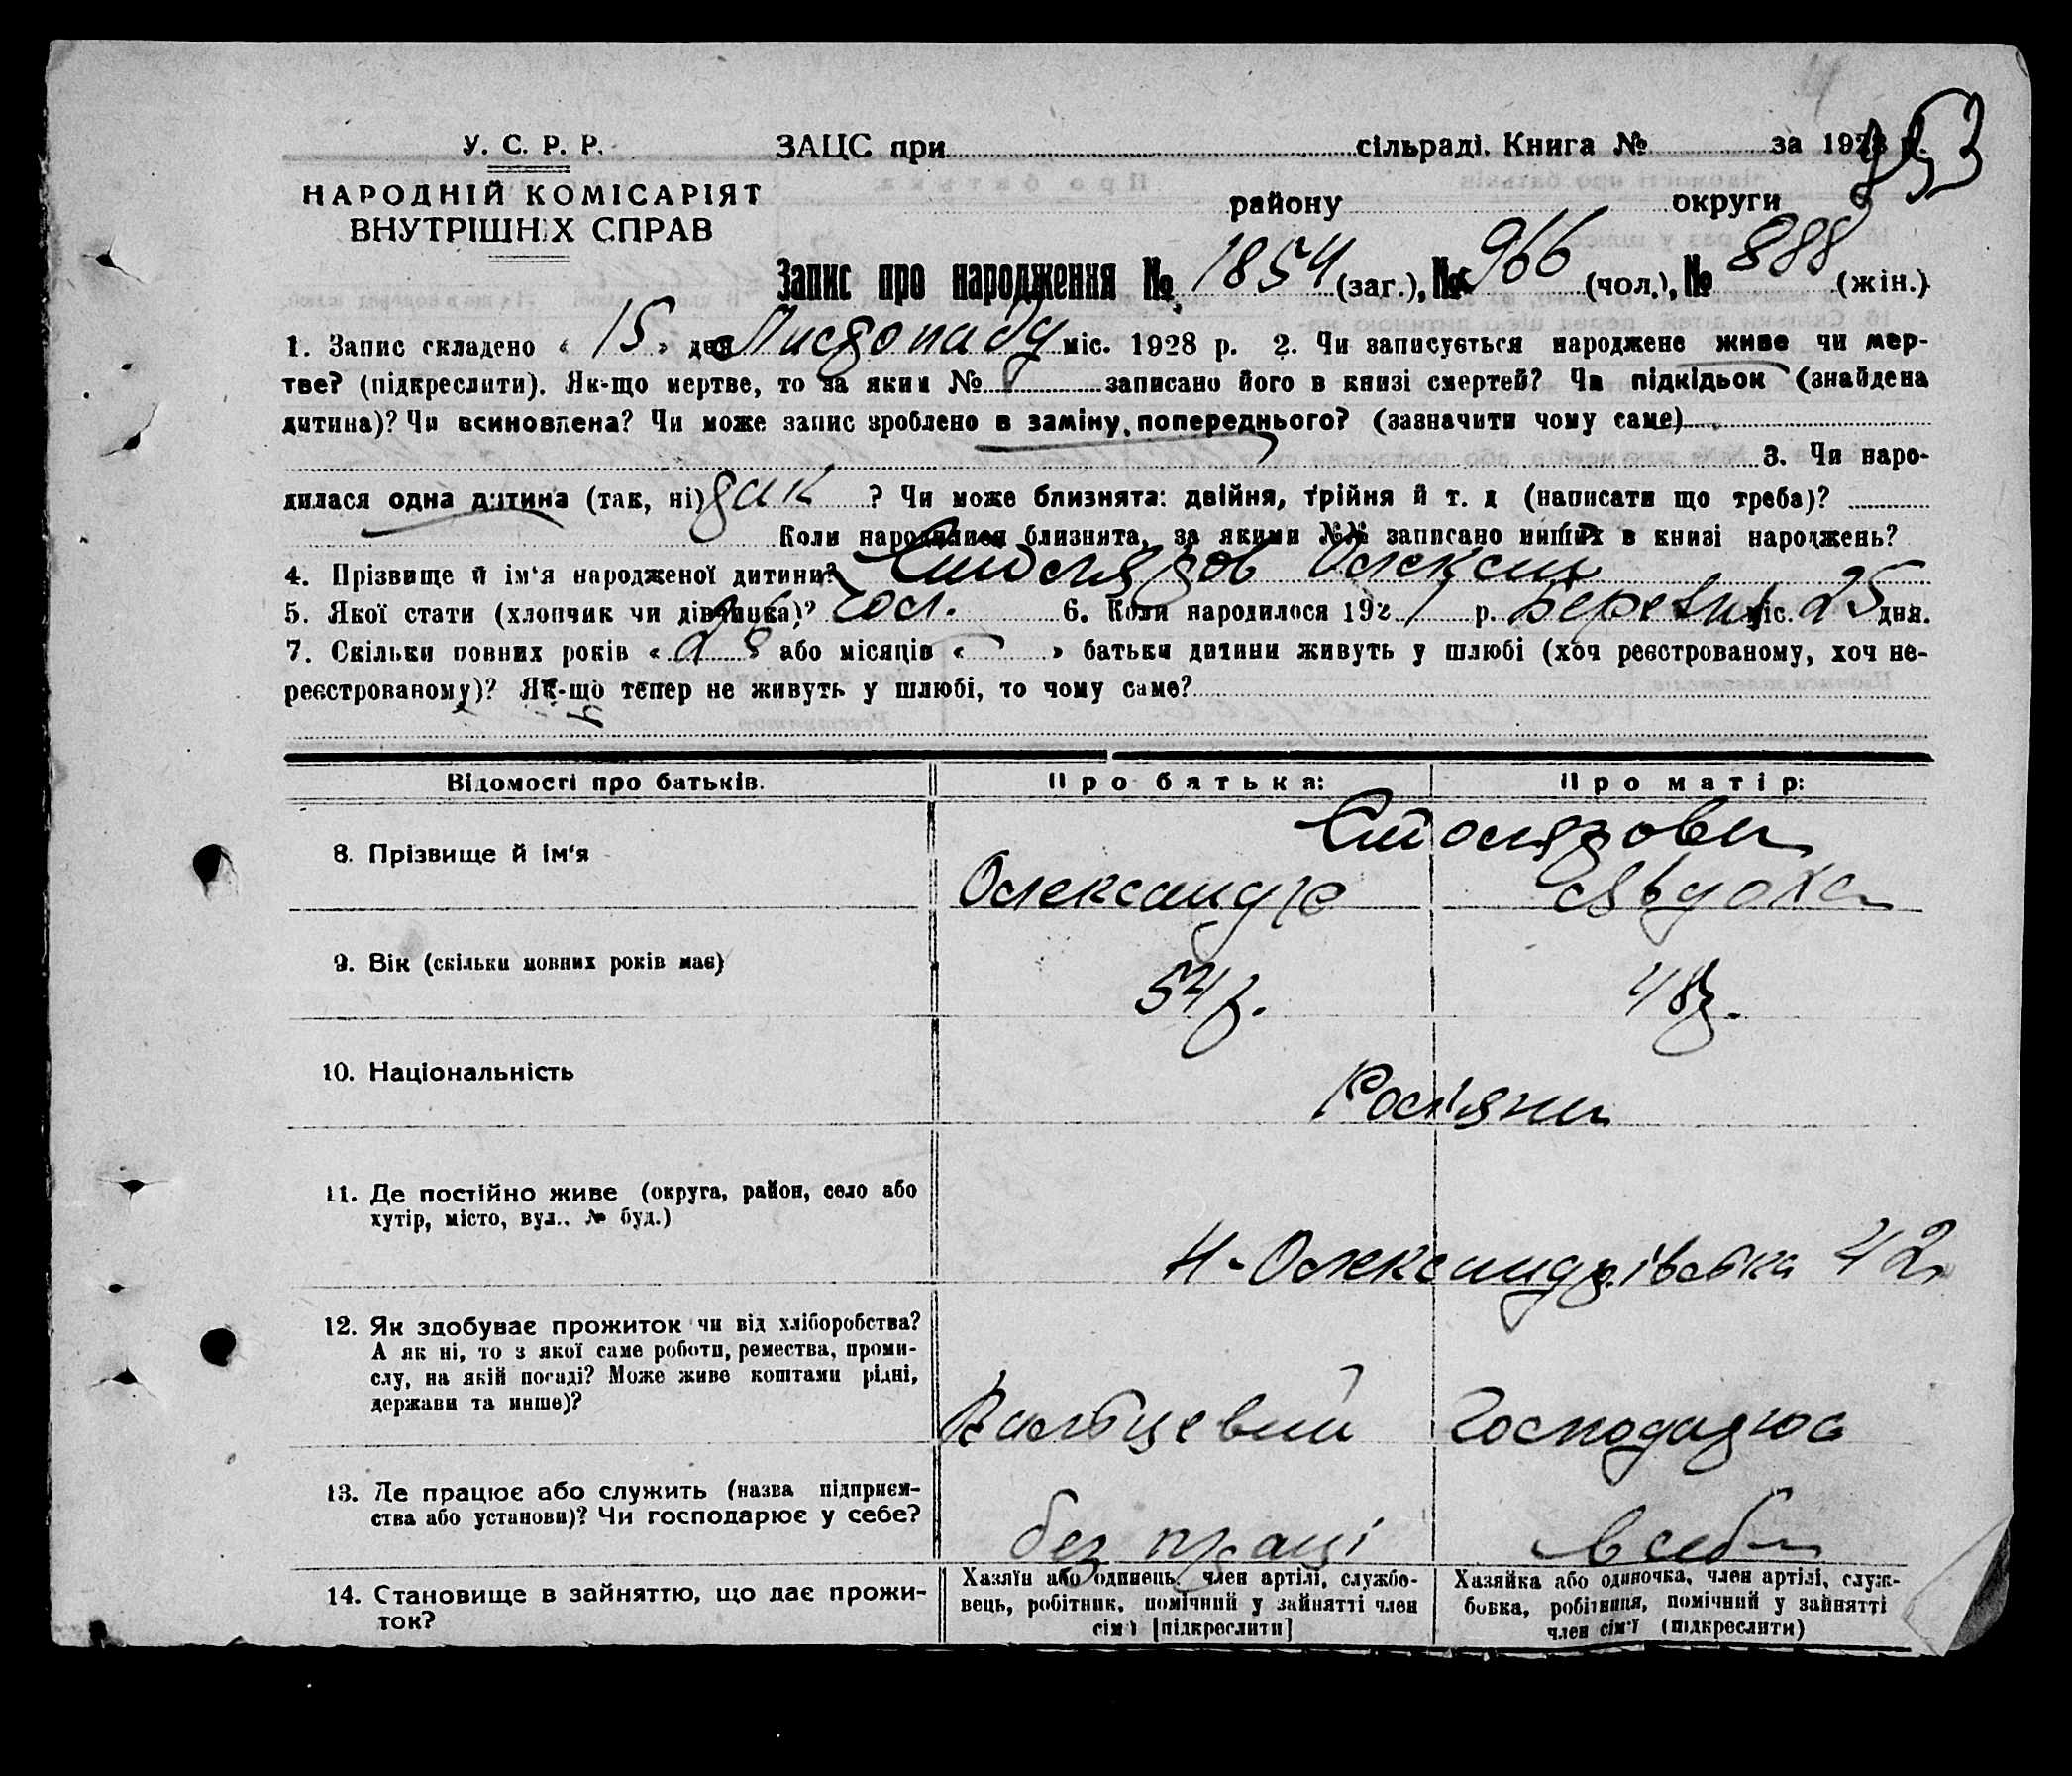 У. С. Р. Р.
НАРОДНІЙ КОМІСАРІЯТ
ВНУТРІШНІХ СПРАВ
ЗАЦС при сільраді. Книга № за 1928 р.
району округи
Запис про народження № 1854 (заг.), № 966 (чол.), № 888 (жін.)
1. Запис складено « 15 » дня Листопаду міс. 1928 р. 2. Чи записується народжене живе чи мер-
тве? (підкреслити). Як-що мертве, то за яким № записано його в книзі смертей? Чи підкідьок (знайдена
дитина)? Чи всиновлена? Чи може запис зроблено в заміну попереднього? (зазначити чому саме)
3. Чи наро-
дилася одна дитина (так, ні) так ? Чи може близнята: двійня, трійня й т. д (написати що треба)?
Коли народилися близнята, за якими №№ записано инших в книзі народжень?
4. Прізвище й ім'я народженої дитини? Столяров Олексій
5. Якої стати (хлопчик чи дівчинка)? чол. 6. Коли народилося 192 р. Березня міс. 25 дня.
7. Скільки повних років « 28 » або місяців « » батьки дитини живуть у шлюбі (хоч реєстрованому, хоч не-
реєстрованому)? Як-що тепер не живуть у шлюбі, то чому саме?
Відомості про батьків. Про батька: Про матір:
Столярови
8. Прізвище й ім'я Олександр Явдоха
9. Вік (скільки повних років має) 54 р. 48 р.
10. Національність Росіяни
11. Де постійно живе (округа, район, село або
хутір, місто, вул., № буд.)
Н-Олександрівська 42
12. Як здобуває прожиток чи від хліборобства?
А як ні, то з якої саме роботи, ремества, проми-
слу, на якій посаді? Може живе коштами рідні,
держави та инше)?
Вальцевий Господарює
13. Де працює або служить (назва підприєм-
ства або установи)? Чи господарює у себе?
без праці в себе
14. Становище в зайняттю, що дає прожи-
ток?
Хазяїн або одинець, член артілі, службо-
вець, робітник, помічний у зайнятті член
сім'ї [підкреслити]
Хазяйка або одиночка, член артілі, служ-
бовка, робітниця, помічний у зайнятті
член сім'ї (підкреслити)